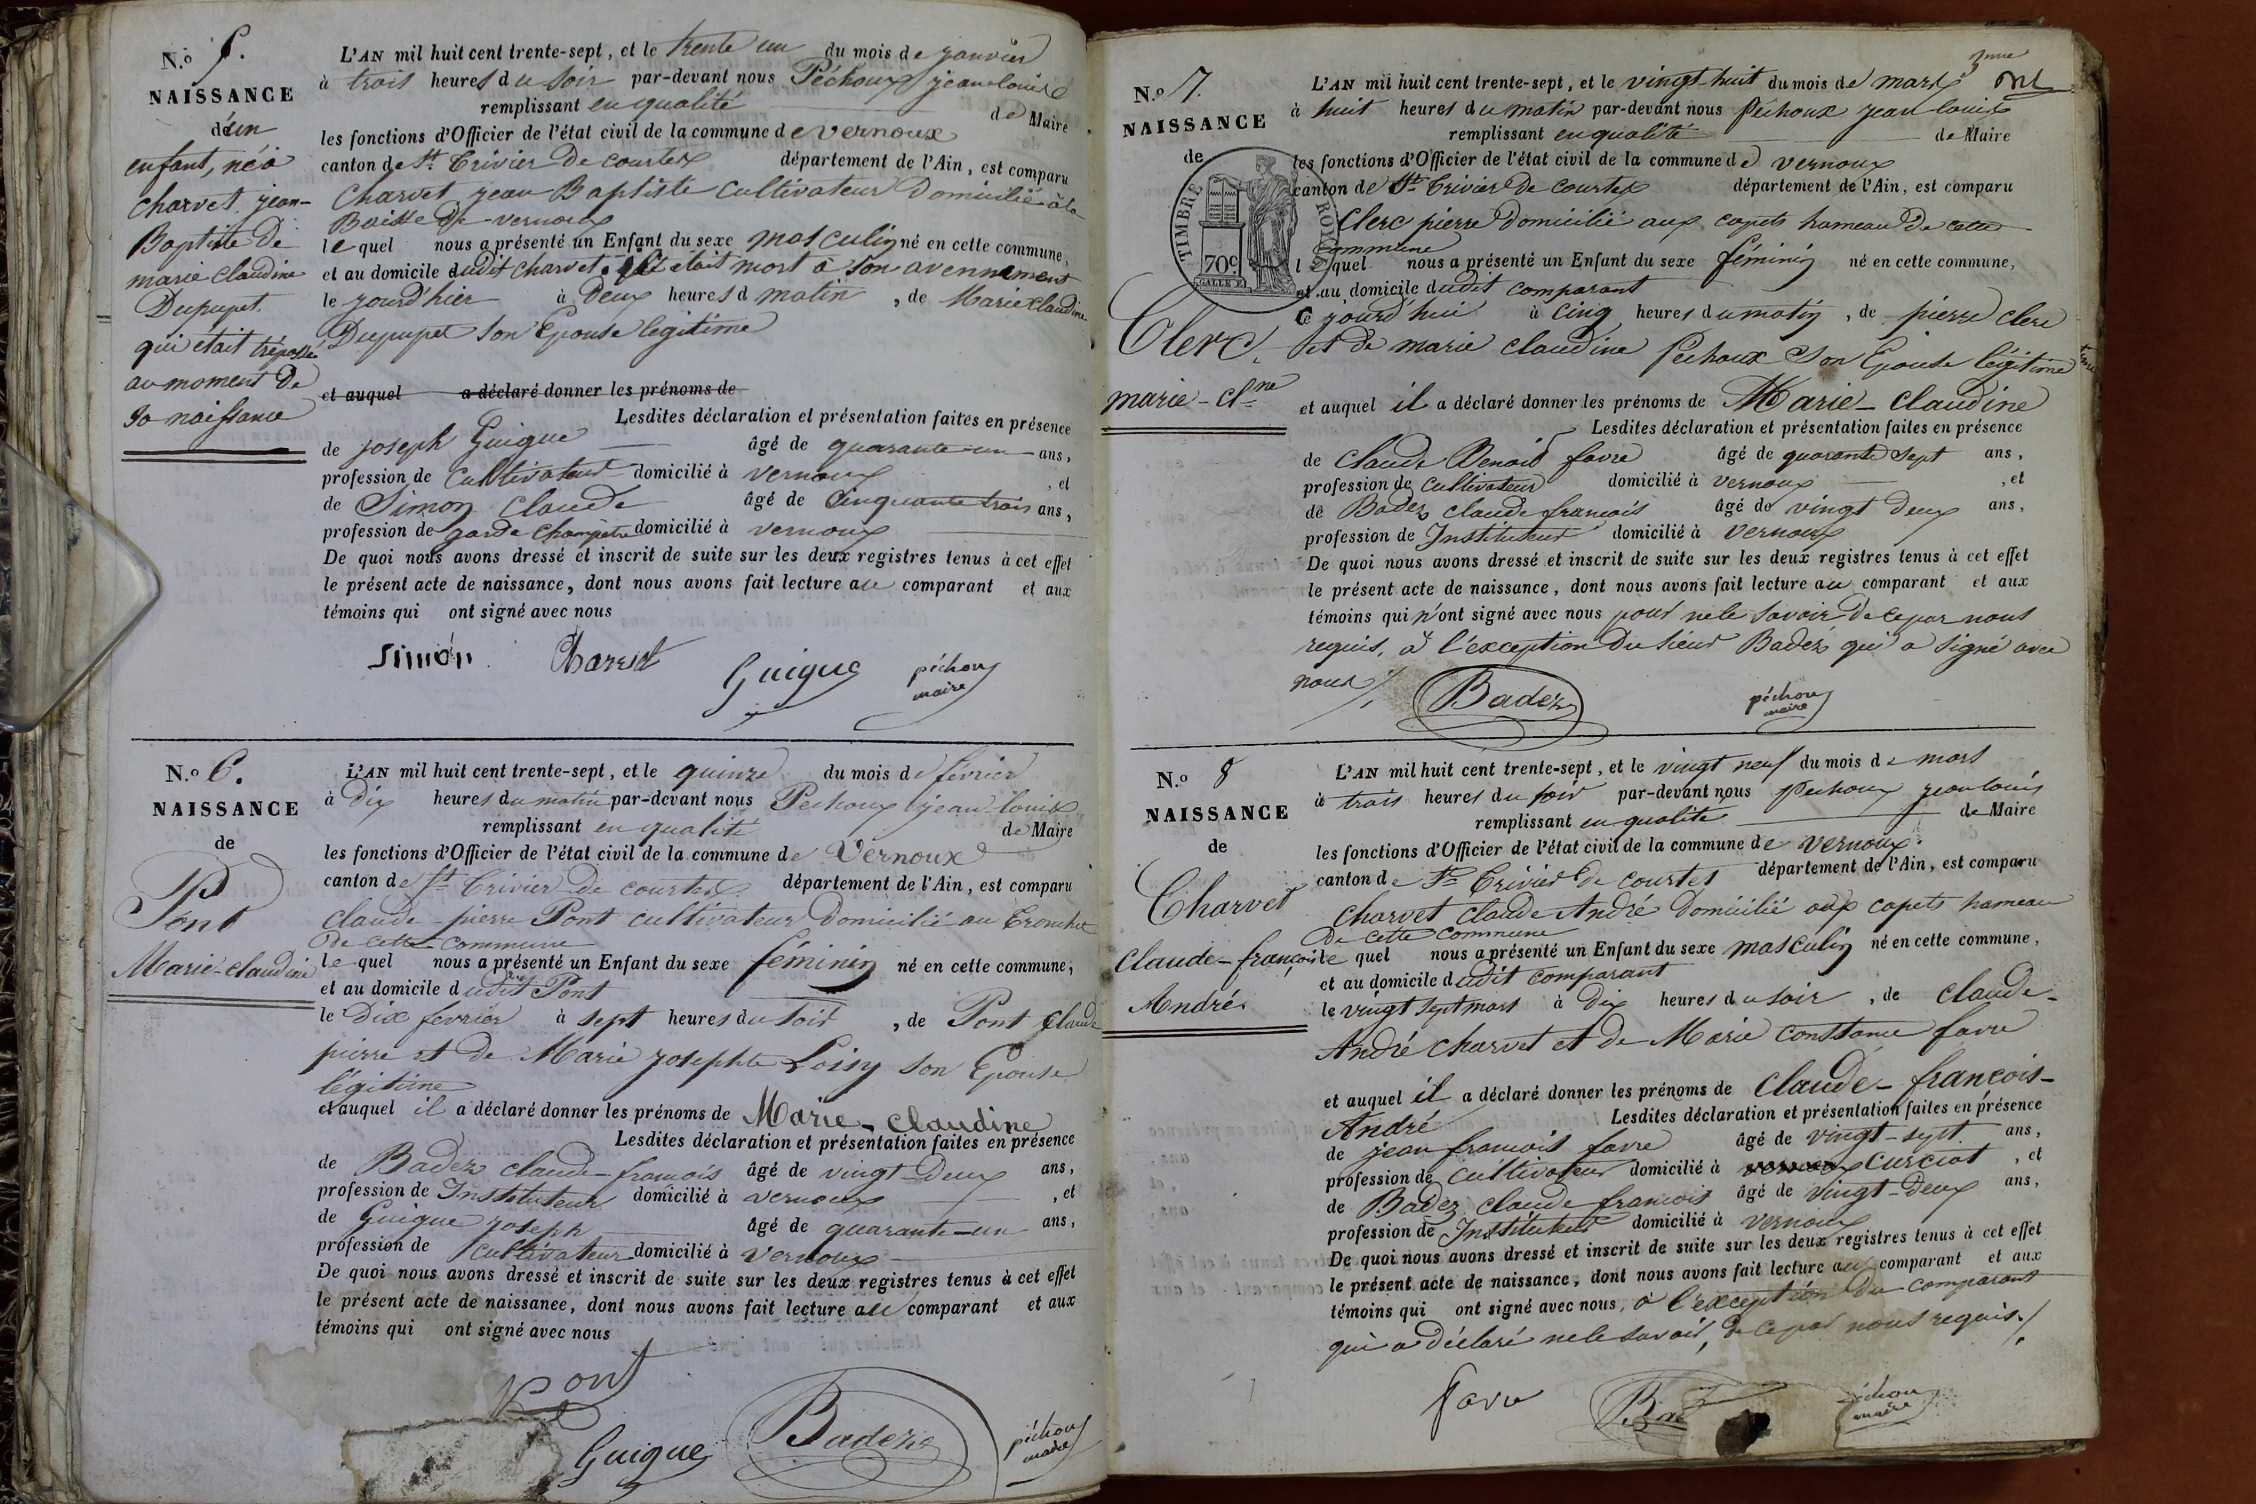 N.o 5.
NAISSANCE
d'un
enfant, né à
charvet jean-
Baptiste de
marie claudine
Dupupet
qui était trépassé
au moment de
sa naissance
L'AN mil huit cent trente-sept, et le trente un du mois de janvier
à trois heures du soir par-devant nous Péchoux jean-louis
remplissant en qualité de Maire
les fonctions d'Officier de l'état civil de la commune de vernoux
canton de St Trivier de courtes département de l'Ain, est comparu
charvet jean Baptiste cultivateur domicilié à la
Baisse de vernoux
lequel nous a présenté un Enfant du sexe masculin né en cette commune,
et au domicile dudit charvet. était mort à son avennement
le jourd'hier à deux heures d matin, de Marie Claudine
Dupupet son Epouse legitime
et auquel a déclaré donner les prénoms de
Lesdites déclaration et présentation faites en présence
de joseph Guigue âgé de quarante-un ans,
profession de cultivateur domicilié à vernoux, et
de Simon claude âgé de cinquante trois ans,
profession de garde champêtre domicilié à vernoux
De quoi nous avons dressé et inscrit de suite sur les deux registres tenus à cet effet
le présent acte de naissance, dont nous avons fait lecture au comparant et aux
témoins qui ont signé avec nous
Simon Charvet Guigue péchoux
maire
N.o 6.
NAISSANCE
de
Pont
Marie-claudine
L'AN mil huit cent trente-sept, et le quinze du mois de février
à dix heures du matin par-devant nous Pechoux jean-louis
remplissant en qualité de Maire
les fonctions d'Officier de l'état civil de la commune de Vernoux
canton de St Trivier de courtes département de l'Ain, est comparu
claude-pierre Pont cultivateur domicilié au Tronchet
de cette commune
lequel nous a présenté un Enfant du sexe féminin né en cette commune,
et au domicile dudit Pont
le dix fevrier à sept heures du soir, de Pont claude
pierre et de Marie josephte Loisy son Epouse
légitime
et auquel il a déclaré donner les prénoms de Marie-claudine
Lesdites déclaration et présentation faites en présence
de Badez claude-francois âgé de vingt-deux ans,
profession de Instituteur domicilié à vernoux, et
de Guigue joseph âgé de quarante-un ans,
profession de cultivateur domicilié à vernoux
De quoi nous avons dressé et inscrit de suite sur les deux registres tenus à cet effet
le présent acte de naissance, dont nous avons fait lecture au comparant et aux
témoins qui ont signé avec nous
Pont
Guigue Badez péchoux
maire
N.o 7.
NAISSANCE
de
TIMBRE ROYAL
70c
Clerc
marie-clne
L'AN mil huit cent trente-sept, et le vingt-huit du mois de mars
à huit heures du matin par-devant nous péchoux jean louis
remplissant en qualité de Maire
les fonctions d'Officier de l'état civil de la commune de vernoux
canton de St Trivier de courtes département de l'Ain, est comparu
Clerc pierre domicilié aux capets hameau de cette
commune
lequel nous a présenté un Enfant du sexe féminin né en cette commune,
et au domicile dudit comparant
ce jourd'hui à cinq heures du matin, de pierre clerc
et de marie claudine péchoux son Epouse légitime
et auquel il a déclaré donner les prénoms de Marie-claudine
Lesdites déclaration et présentation faites en présence
de claude Benoit favre âgé de quarante sept ans,
profession de cultivateur domicilié à vernoux, et
de Badez claude francois âgé de vingt deux ans,
profession de Instituteur domicilié à vernoux
De quoi nous avons dressé et inscrit de suite sur les deux registres tenus à cet effet
le présent acte de naissance, dont nous avons fait lecture au comparant et aux
témoins qui n'ont signé avec nous pour ne le savoir de ce par nous
requis, à l'exception du sieur Badez qui a signé avec
nous
Badez péchoux
maire
N.o 8
NAISSANCE
de
Charvet
claude-françois
André
L'AN mil huit cent trente-sept, et le vingt neuf du mois de mars
à trois heures du soir par-devant nous pechoux jean louis
remplissant en qualité de Maire
les fonctions d'Officier de l'état civil de la commune de vernoux
canton de St Trivier de courtes département de l'Ain, est comparu
charvet claude André domicilié aux capets hameau
de cette commune
lequel nous a présenté un Enfant du sexe masculin né en cette commune,
et au domicile dudit comparant
le vingt sept mars à dix heures du soir, de claude-
André charvet et de Marie constance favre
et auquel il a déclaré donner les prénoms de claude-françois-
André
Lesdites déclaration et présentation faites en présence
de jean francois favre âgé de vingt-sept ans,
profession de cultivateur domicilié à vernoux curciat, et
de Badez claude francois âgé de vingt-deux ans,
profession de Instituteur domicilié à vernoux
De quoi nous avons dressé et inscrit de suite sur les deux registres tenus à cet effet
le présent acte de naissance, dont nous avons fait lecture au comparant et aux
témoins qui ont signé avec nous, à l'exception du comparant
qui a déclaré ne le savoir, de ce par nous requis.
favre péchoux
maire